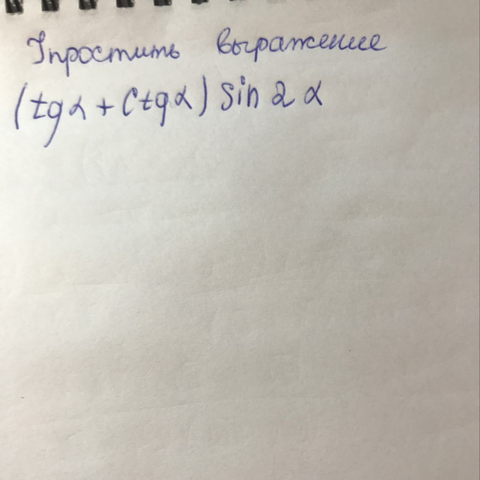 Упростить выражение
(tgα + ctgα) sin 2 α